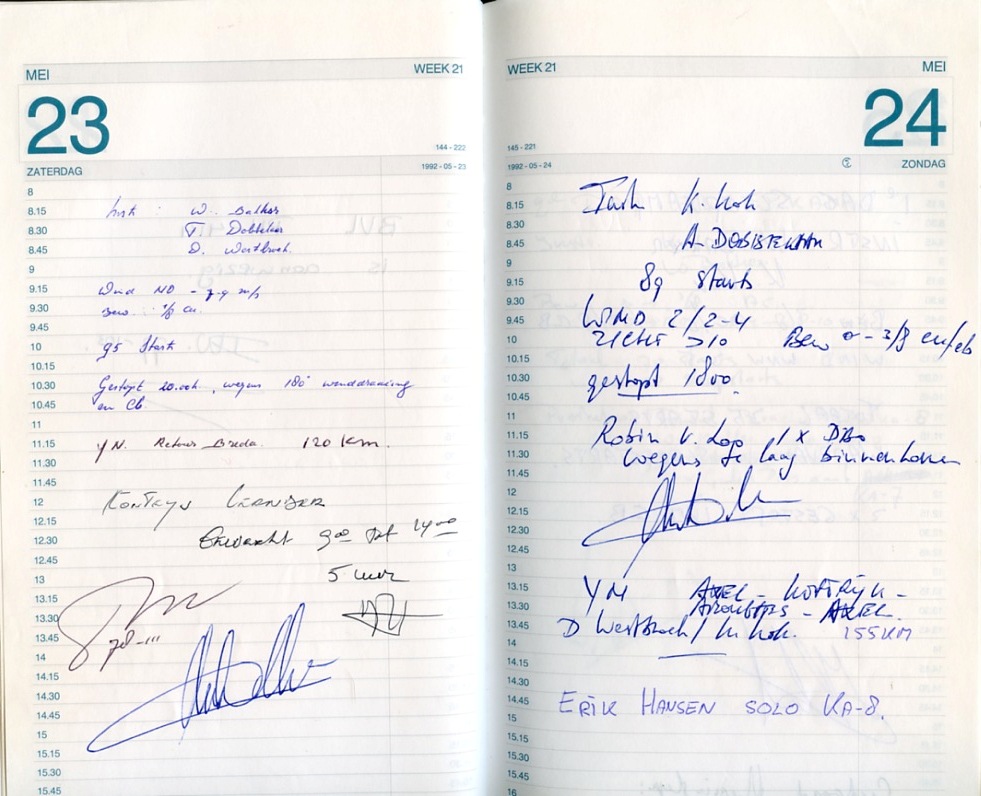 MEI WEEK 21
23
144 - 222
ZATERDAG 1992 - 05 - 23
8
8.15 Inst : W. Bakker
8.30 T. Dobbelaar
8.45 D. Westbroek
9
9.15 Wind NO - 7-9 m/s
9.30 Bew. : 1/8 cu.
9.45
10 95 Starts
10.15
10.30 Gestopt 20.00h, wegens 180° winddraaiing
10.45 en Cb.
11
11.15 YN. Retour Breda. 120 Km.
11.30
11.45
12
12.15
12.30 9.00 tot 14.00
12.45
13 5 uur
13.15
13.30
13.45
14
14.15
14.30
14.45
15
15.15
15.30
15.45
WEEK 21 MEI
24
145 - 221
1992 - 05 - 24 ZONDAG
8
8.15 K. Kok
8.30
8.45 A. DOBBELAAR
9
9.15 89 starts
9.30
9.45 WIND 2/2-4
10 ZICHT >10 Bew 0 - 3/8 cu/cb
10.15
10.30 gestopt 1800.
10.45
11
11.15 Robin v. Loo 1 x DBo
11.30 wegens te laag binnenkomen
11.45
12
12.15
12.30
12.45
13
13.15 YN AXEL - KORTRIJK -
13.30 - AXEL.
13.45 D Westbroek / K. Kok. 155 KM
14
14.15
14.30
14.45 ERIK HANSEN SOLO KA-8.
15
15.15
15.30
15.45
16